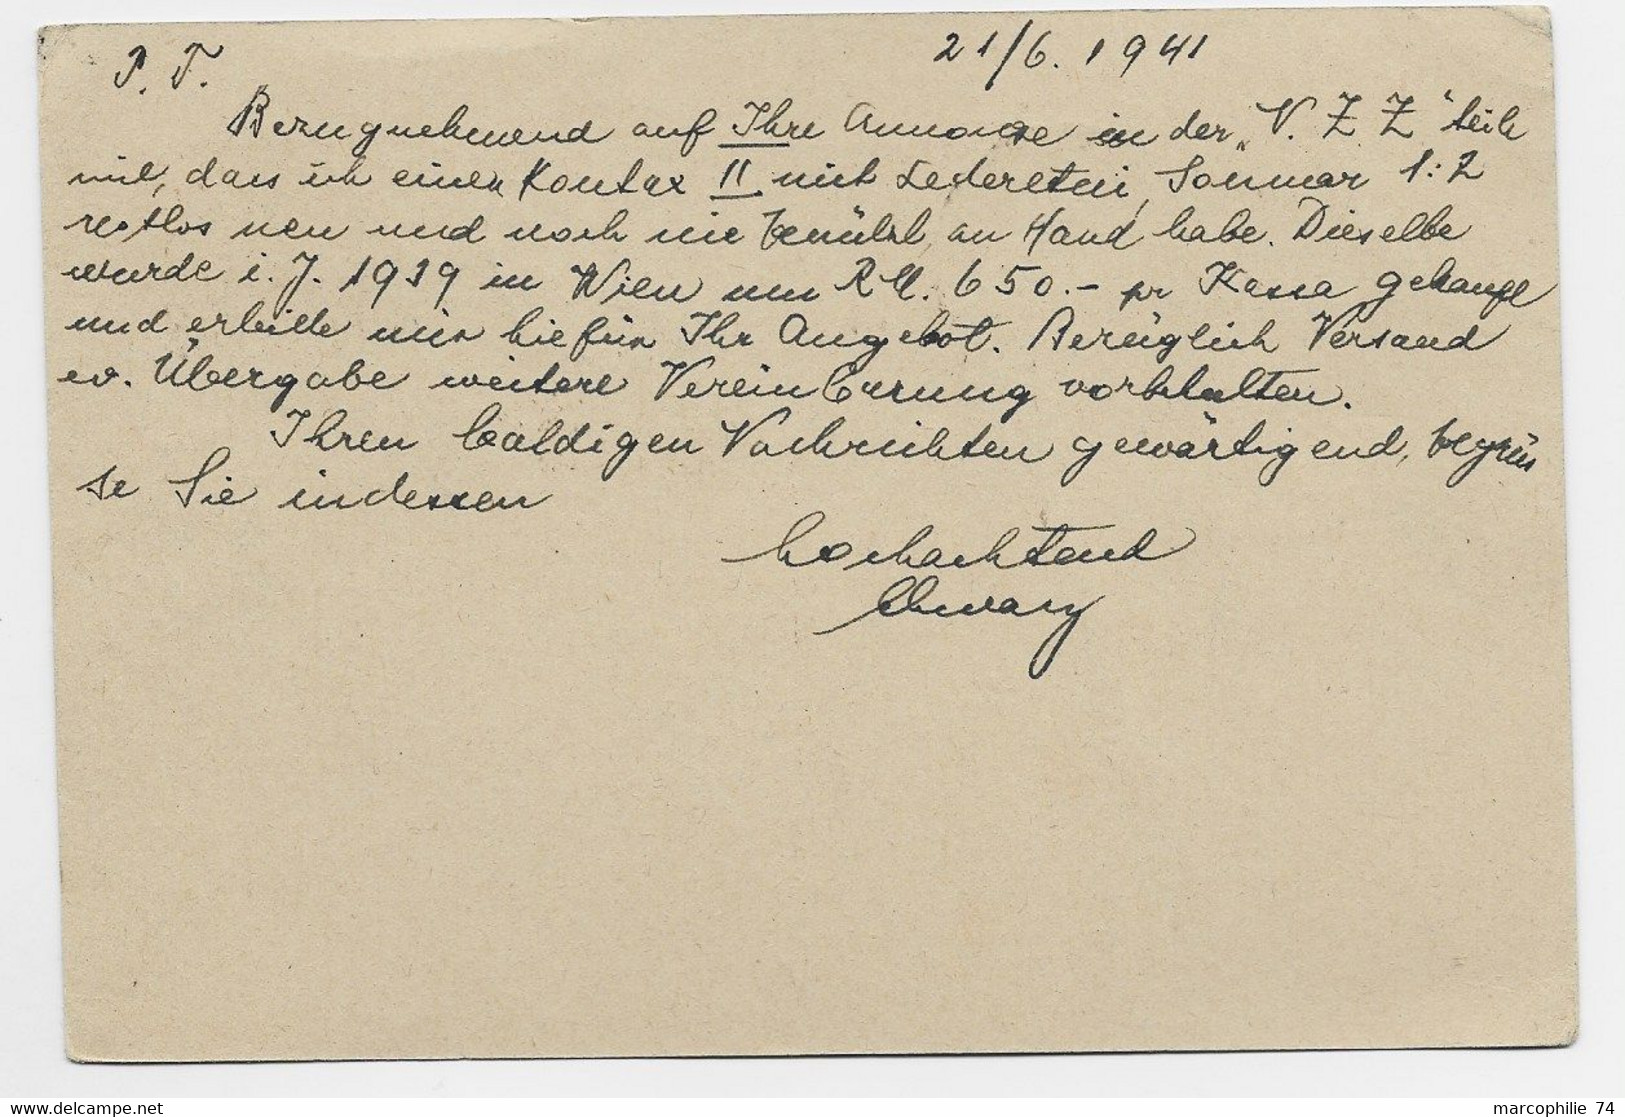 21/6. 1941
P. T.
Bezugnehmend auf Ihre Annonze in der „V. Z Z" teile
mit, dass ich einen Kontax II mit Lederetui, Sonnar 1:2
restlos neu und noch nie benützt, an Hand habe. Dieselbe
wurde i. J. 1939 in Wien um RM. 650.- pr Kassa gekauft
und erbitte mir hiefür Ihr Angebot. Bezüglich Versand
ev. Übergabe weitere Vereinbarung vorbehalten.
Ihren baldigen Nachrichten gewärtigend, begrüs
se Sie indessen
hochachtend
marcophilie 74